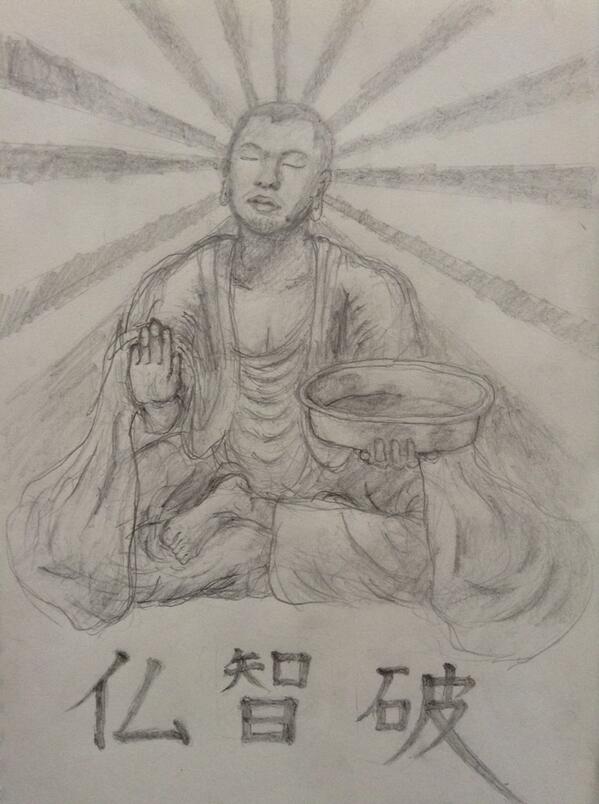 仏智破